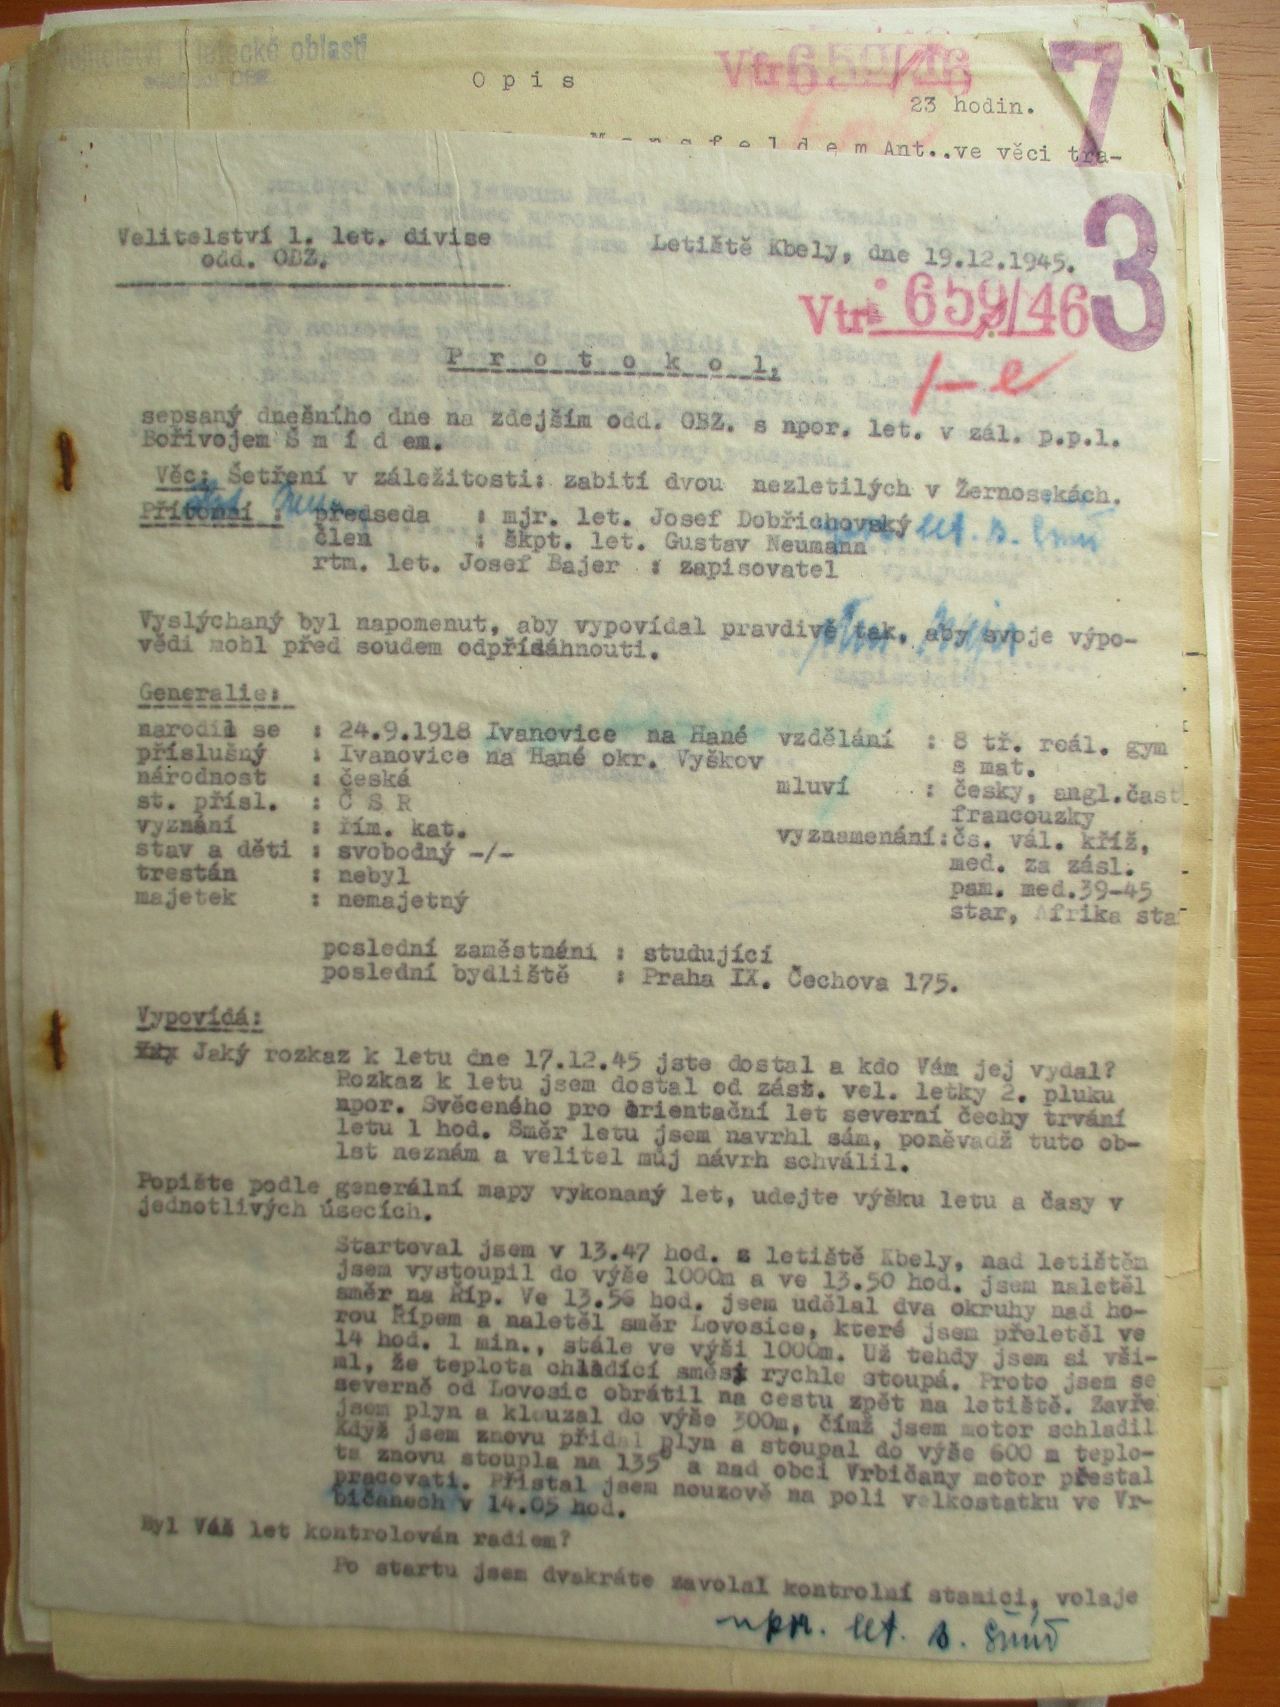 Velitelství 1. letecké oblasti
Opis
Vtr 659/46
7
23 hodin.
M a n s f e l d e m Ant..ve věci tra-
Velitelství 1. let. divise
odd. OBZ.
Letiště Kbely, dne 19.12.1945.
3
Vtr 659/46
1-e
P r o t o k o l,
sepsaný dnešního dne na zdejším odd. OBZ. s npor. let. v zál. p.p.l.
Bořivojem Š m í d em.
Věc: Šetření v záležitosti: zabití dvou nezletilých v Žernosekách.
Přítomni : předseda : mjr. let. Josef Dobřichovský
člen : škpt. let. Gustav Neumann
rtm. let. Josef Bajer : zapisovatel
Vyslýchaný byl napomenut, aby vypovídal pravdivě tak, aby svoje výpo-
vědi mohl před soudem odpřísáhnouti.
Generalie:
narodil se : 24.9.1918 Ivanovice na Hané
příslušný : Ivanovice na Hané okr. Vyškov
národnost : česká
st. přísl. : Č S R
vyznání : řím. kat.
stav a děti : svobodný -/-
trestán : nebyl
majetek : nemajetný
vzdělání : 8 tř. reál. gym
s mat.
mluví : česky, angl.část
francouzky
vyznamenání: čs. vál. kříž,
med. za zásl.
pam. med.39-45
star, Afrika sta
poslední zaměstnání : studující
poslední bydliště : Praha IX. Čechova 175.
Vypovídá:
Jaký rozkaz k letu dne 17.12.45 jste dostal a kdo Vám jej vydal?
Rozkaz k letu jsem dostal od zást. vel. letky 2. pluku
npor. Svěceného pro orientační let severní čechy trvání
letu 1 hod. Směr letu jsem navrhl sám, poněvadž tuto ob-
lst neznám a velitel můj návrh schválil.
Popište podle generální mapy vykonaný let, udejte výšku letu a časy v
jednotlivých úsecích.
Startoval jsem v 13.47 hod. z letiště Kbely, nad letištěm
jsem vystoupil do výše 1000m a ve 13.50 hod. jsem naletěl
směr na Říp. Ve 13.56 hod. jsem udělal dva okruhy nad ho-
rou Řípem a naletěl směr Lovosice, které jsem přeletěl ve
14 hod. 1 min., stále ve výši 1000m. Už tehdy jsem si vši-
ml, že teplota chladící směsi rychle stoupá. Proto jsem se
severně od Lovosic obrátil na cestu zpět na letiště. Zavřel
jsem plyn a klouzal do výše 300m, čímž jsem motor schladil
Když jsem znovu přidal plyn a stoupal do výše 600 m teplo-
ta znovu stoupla na 135° a nad obcí Vrbičany motor přestal
pracovati. Přistal jsem nouzově na poli velkostatku ve Vr-
bičanech v 14.05 hod.
Byl Váš let kontrolován radiem?
Po startu jsem dvakráte zavolal kontrolní stanici, volaje
npor. let. B. Šmíd